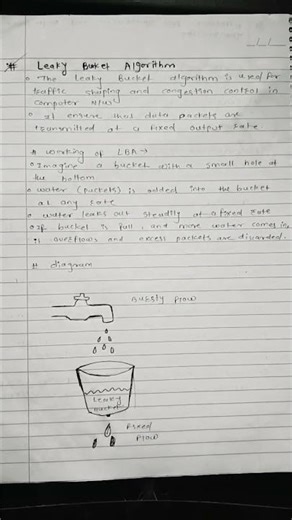 # Leaky Buket Algorithm
o The leaky Bucket algorithm is used for
traffic shaping and congestion control in
computer N/ws
o It ensure that data packets are
transmitted at a fixed output rate.
# working of LBA→
o Imagine a bucket with a small hole at
the bottom
o water (packets) is added into the bucket
at any rate
o water leaks out steadily at a fixed rate
o If bucket is full, and more water comes in,
it overflows and excess packets are discarded.
# diagram
Bursty flow
Leaky
Bucket
Fixed
Flow